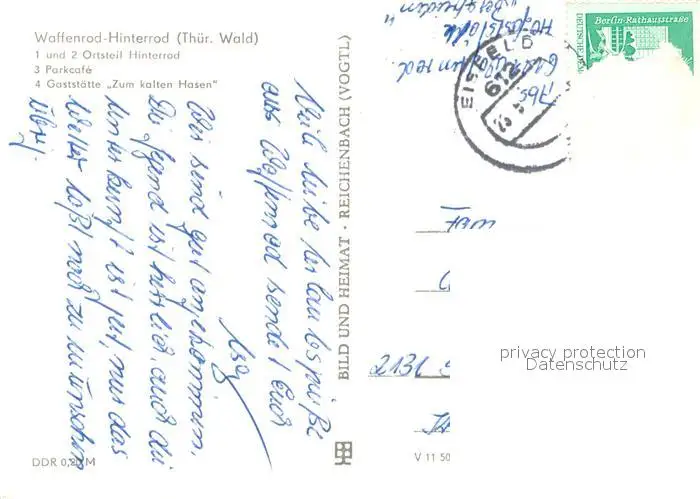 Waffenrod-Hinterrod (Thür. Wald)
1 und 2 Ortsteil Hinterrod
3 Parkcafé
4 Gaststätte „Zum kalten Hasen"
Viele liebe Urlaubsgrüße
aus Waffenrod sendet Euch
Wir sind gut angekommen.
Die Gegend ist herrlich, auch die
Unterkunft ist gut, nur das
Wetter läßt noch zu wünschen
übrig.
DDR 0,20 M
BILD UND HEIMAT · REICHENBACH (VOGTL)
V 11 50
Abs.
EISFELD
612
Berlin-Rathausstraße
Frau
2131
privacy protection
Datenschutz